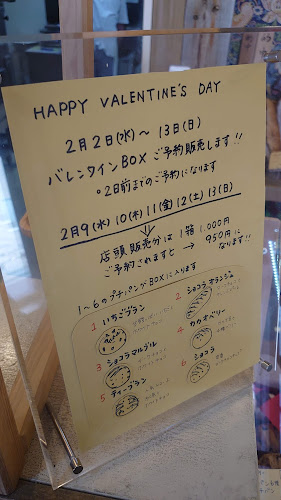 HAPPY VALENTINE'S DAY
2月2日(水)〜13日(日)
バレンタインBOX ご予約販売します!!
。2日前までのご予約になります
2月9(水)10(木)11(金)12(土)13(日)
店頭販売分は1箱1,000円
ご予約されますと → 950円に
なります!!
1〜6のプチパンがBOXに入ります
1 いちごブラン
2 ショコラオランジュ
3 ショコラマルブル
4 カカオベリー
5 ティーブラン
6 ショコラ